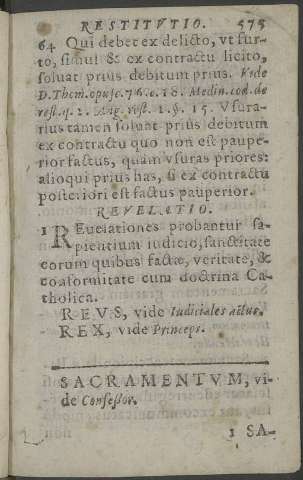 RESTITVTIO. 575
64 Qui debet ex delicto, vt fur-
to, simul & ex contractu licito,
soluat prius debitum prius. Vide
D. Thom. opusc. 76. c. 18. Medin. cod. de
rest. q. 2. Ang. rest. 1. §. 15. Vsura-
rius tamen soluat prius debitum
ex contractu quo non est paupe-
rior factus, quàm vsuras priores:
alioqui prius has, si ex contractu
posteriori est factus pauperior.
REVELATIO.
1 REuelationes probantur sa-
pientium iudicio, sanctitate
eorum quibus factæ, veritate, &
conformitate cum doctrina Ca-
tholica.
REVS, vide Iudiciales actus.
REX, vide Princeps.
SACRAMENTVM, vi-
de Confessor.
1 SA-